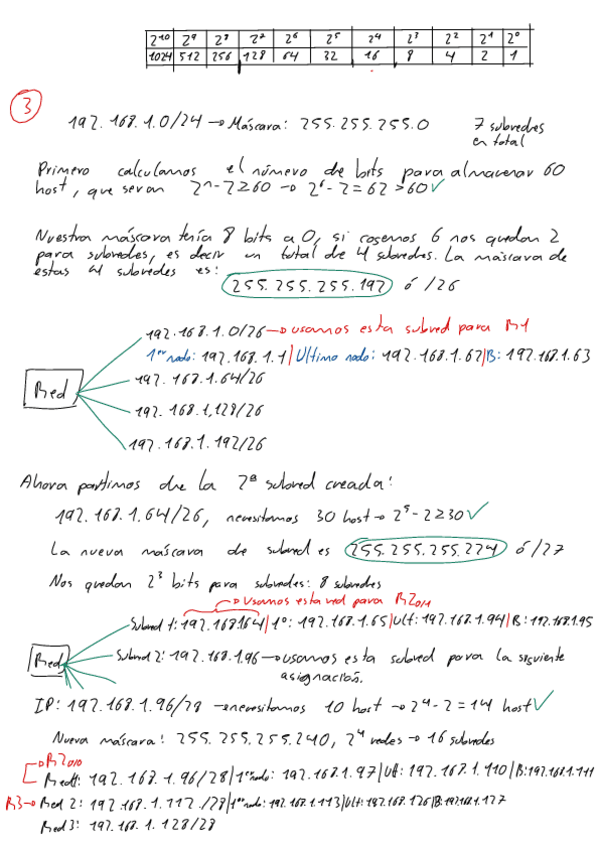 2¹⁰ 2⁹ 2⁸ 2⁷ 2⁶ 2⁵ 2⁴ 2³ 2² 2¹ 2⁰
1024 512 256 128 64 32 16 8 4 2 1
3
192.168.1.0/24 → Máscara: 255.255.255.0 7 subredes
en total
Primero calculamos el número de bits para almacenar 60
host, que seran 2ⁿ-2≥60 → 2⁶-2=62>60✓
Nuestra máscara tenía 8 bits a 0, si cogemos 6 nos quedan 2
para subredes, es decir un total de 4 subredes. La máscara de
estas 4 subredes es: 255.255.255.192 ó /26
192.168.1.0/26 → usamos esta subred para R1
1er nodo: 192.168.1.1 | Ultimo nodo: 192.168.1.62 | B: 192.168.1.63
Red
192.168.1.64/26
192.168.1,128/26
192.168.1.192/26
Ahora partimos de la 2ª subred creada:
192.168.1.64/26, necesitamos 30 host → 2⁵-2≥30✓
La nueva máscara de subred es 255.255.255.224 ó /27
Nos quedan 2³ bits para subredes: 8 subredes
→ Usamos esta red para R2
Subred 1: 192.168.1.64 | 1º: 192.168.1.65 | Ult: 192.168.1.94 | B: 192.168.1.95
Red
Subred 2: 192.168.1.96 → usamos esta subred para la siguiente
asignación.
IP: 192.168.1.96/28 → necesitamos 10 host → 2⁴-2=14 host✓
Nueva máscara: 255.255.255.240, 2⁴ redes → 16 subredes
Red1: 192.168.1.96/28 | 1er nodo: 192.168.1.97 | Ult: 192.168.1.110 | B: 192.168.1.111
R3 → Red 2: 192.168.1.112/28 | 1er nodo: 192.168.1.113 | Ult: 192.168.126 | B: 192.168.1.127
Red 3: 192.168.1.128/28